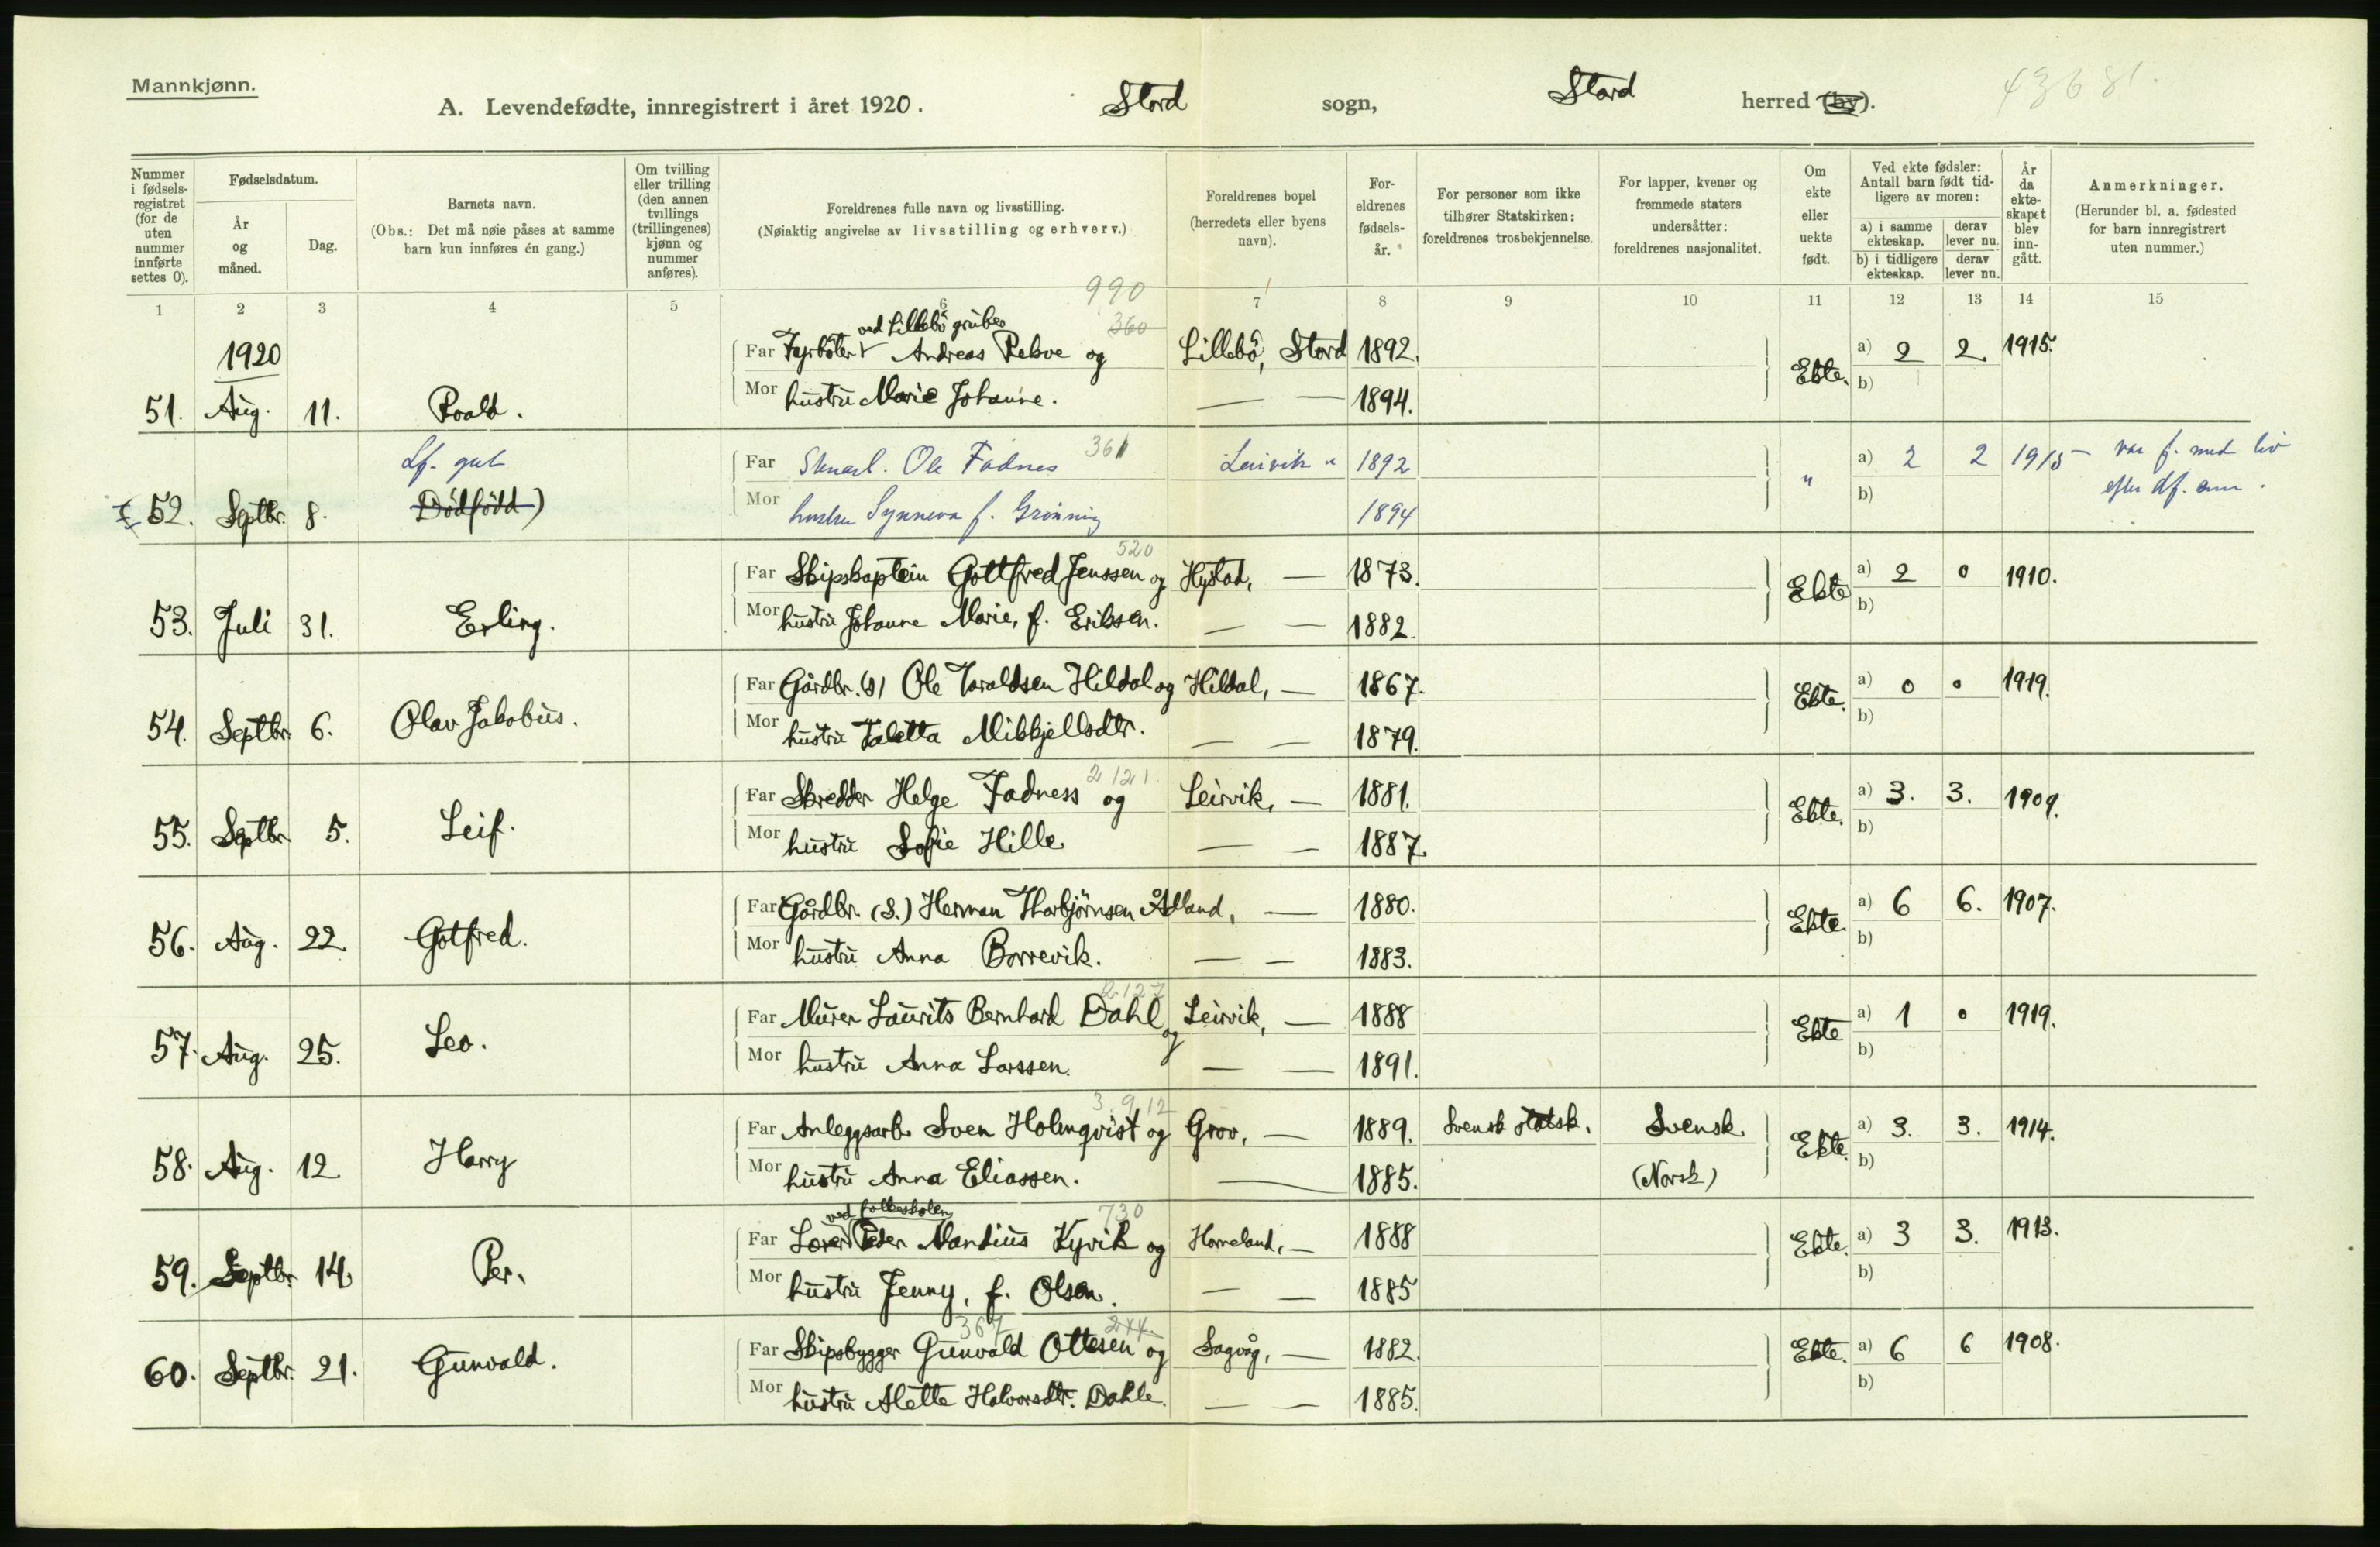 Mannkjønn.
A. Levendefødte, innregistrert i året 1920. Stord sogn, Stord herred (by). 43681.
Nummer i fødsels-registret (for de uten nummer innførte settes 0).
Fødselsdatum.
År og måned.
Dag.
Barnets navn.
(Obs.: Det må nøie påses at samme barn kun innføres én gang.)
Om tvilling eller trilling (den annen tvillings (trillingenes) kjønn og nummer anføres).
Foreldrenes fulle navn og livsstilling.
(Nøiaktig angivelse av livsstilling og erhverv.)
Foreldrenes bopel (herredets eller byens navn).
For-eldrenes fødsels-år.
For personer som ikke tilhører Statskirken: foreldrenes trosbekjennelse.
For lapper, kvener og fremmede staters undersåtter: foreldrenes nasjonalitet.
Om ekte eller uekte født.
Ved ekte fødsler: Antall barn født tid-ligere av moren:
a) i samme ekteskap. derav lever nu.
b) i tidligere ekteskap. derav lever nu.
År da ekte-skapet blev inn-gått.
Anmerkninger.
(Herunder bl. a. fødested for barn innregistrert uten nummer.)
1 2 3 4 5 6 7 8 9 10 11 12 13 14 15
990
ved Lillebö gruber 360
1920 Far Fyrböter Andreas Rekve og Lillebö, Stord 1892. Ekte. a) 2 2. 1915.
51. Aug. 11. Roald. Mor hustru Marie Johanne. — — 1894. b)
Lf. gut Far Ole Fadnes 361 Leirvik " 1892 " a) 2 2 1915 var f. med liv
52. Septbr. 8. Dødfödd) Mor hustru Synneva f. Grönning 1894 b) efter df. anm.
520
Far Skipskaptein Gottfred Jenssen og Hystad, — 1873. Ekte a) 2 0 1910.
53. Juli 31. Erling. Mor hustru Johanne Marie, f. Eriksen. — — 1882. b)
Far Gårdbr. (S) Ole Taraldsen Hildal og Hildal, — 1867. Ekte. a) 0 0 1919.
54. Septbr. 6. Olav Jakobus. Mor hustru Taletta Mikkjellsdtr. — — 1879. b)
2121
Far Skredder Helge Fadness og Leirvik, — 1881. Ekte. a) 3. 3. 1909.
55. Septbr. 5. Leif. Mor hustru Sofie Hille — — 1887. b)
Far Gårdbr. (S.) Herman Thorbjörnsen Ådland, — 1880. Ekte a) 6 6. 1907.
56. Aug. 22. Gotfred. Mor hustru Anna Borrevik. — — 1883. b)
2127
Far Murer Laurits Bernhard Dahl og Leirvik, — 1888 Ekte a) 1 0 1919.
57. Aug. 25. Leo. Mor hustru Anna Larssen. — — 1891. b)
3.912
Far Anleggsarb. Sven Holmqvist og Grov, — 1889. Svensk statsk. Svensk Ekte. a) 3. 3. 1914.
58. Aug. 12. Harry Mor hustru Anna Eliassen. — 1885. (Norsk) b)
ved folkeskolen 730
Far Lærer Peder Mandius Kyvik og Horneland, — 1888 Ekte. a) 3 3. 1913.
59. Septbr. 14. Per. Mor hustru Jenny, f. Olsen. — — 1885 b)
367 244
Far Skipsbygger Gunvald Ottesen og Sagvåg, — 1882. Ekte. a) 6 6 1908.
60. Septbr. 21. Gunvald. Mor hustru Alette Halvorsdtr. Dahle. — — 1885. b)